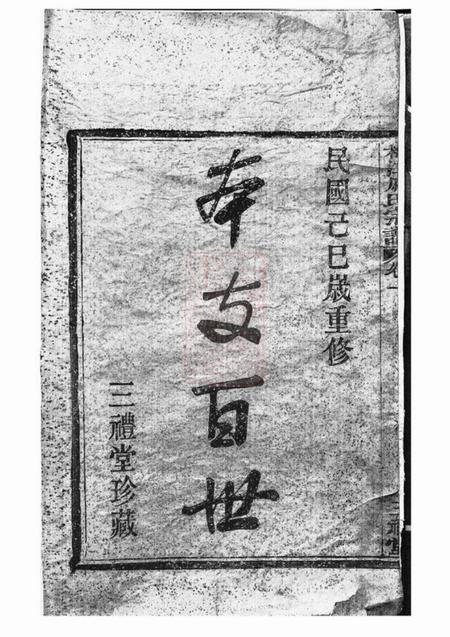 民國己巳歲重修
本支百世
三禮堂珍藏
三禮堂